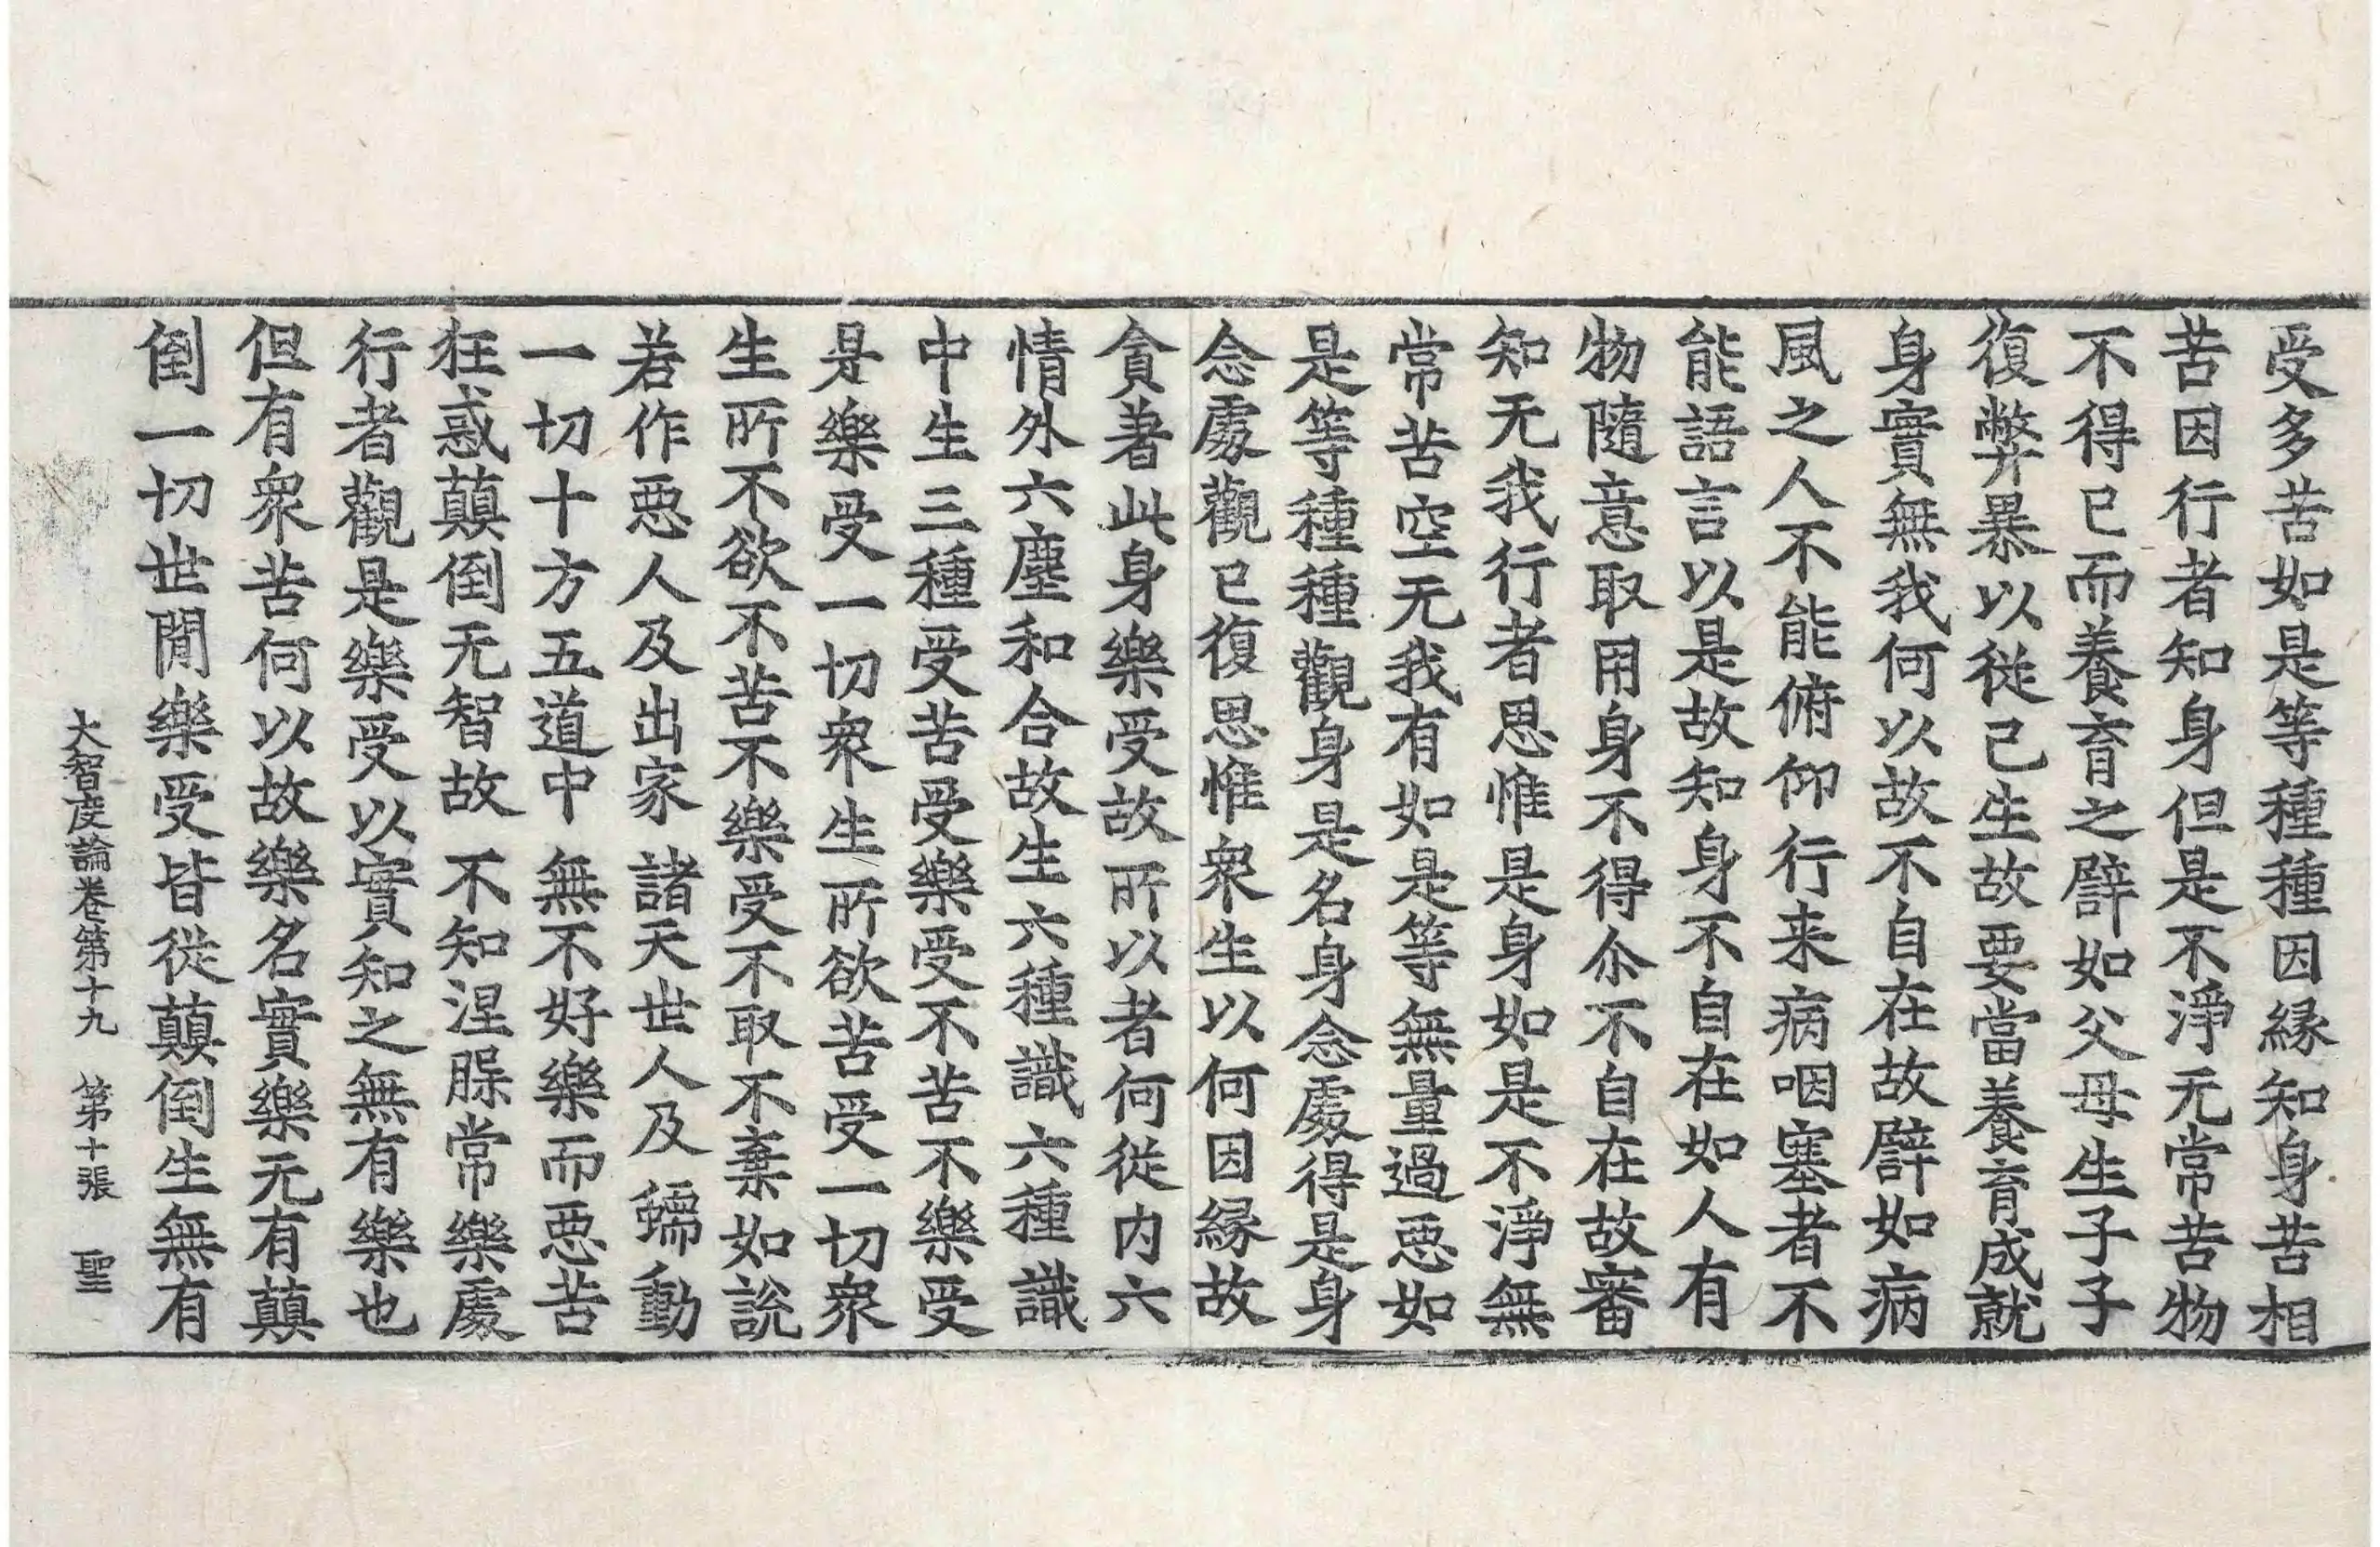 受多苦如是等種種因縁知身苦相
苦因行者知身但是不淨无常苦物
不得已而養育之譬如父母生子子
復弊暴以從己生故要當養育成就
身實無我何以故不自在故譬如病
風之人不能俯仰行来病咽塞者不
能語言以是故知身不自在如人有
物隨意取用身不得尒不自在故審
知无我行者思惟是身如是不淨無
常苦空无我有如是等無量過惡如
是等種種觀身是名身念處得是身
念處觀已復思惟衆生以何因縁故
貪著此身樂受故所以者何從内六
情外六塵和合故生六種識六種識
中生三種受苦受樂受不苦不樂受
是樂受一切衆生所欲苦受一切衆
生所不欲不苦不樂受不取不棄如說
若作惡人及出家諸天世人及蠕動
一切十方五道中無不好樂而惡苦
狂惑顛倒无智故不知涅槃常樂處
行者觀是樂受以實知之無有樂也
但有衆苦何以故樂名實樂无有顛
倒一切世閒樂受皆從顛倒生無有
大智度論卷第十九 第十張 聖